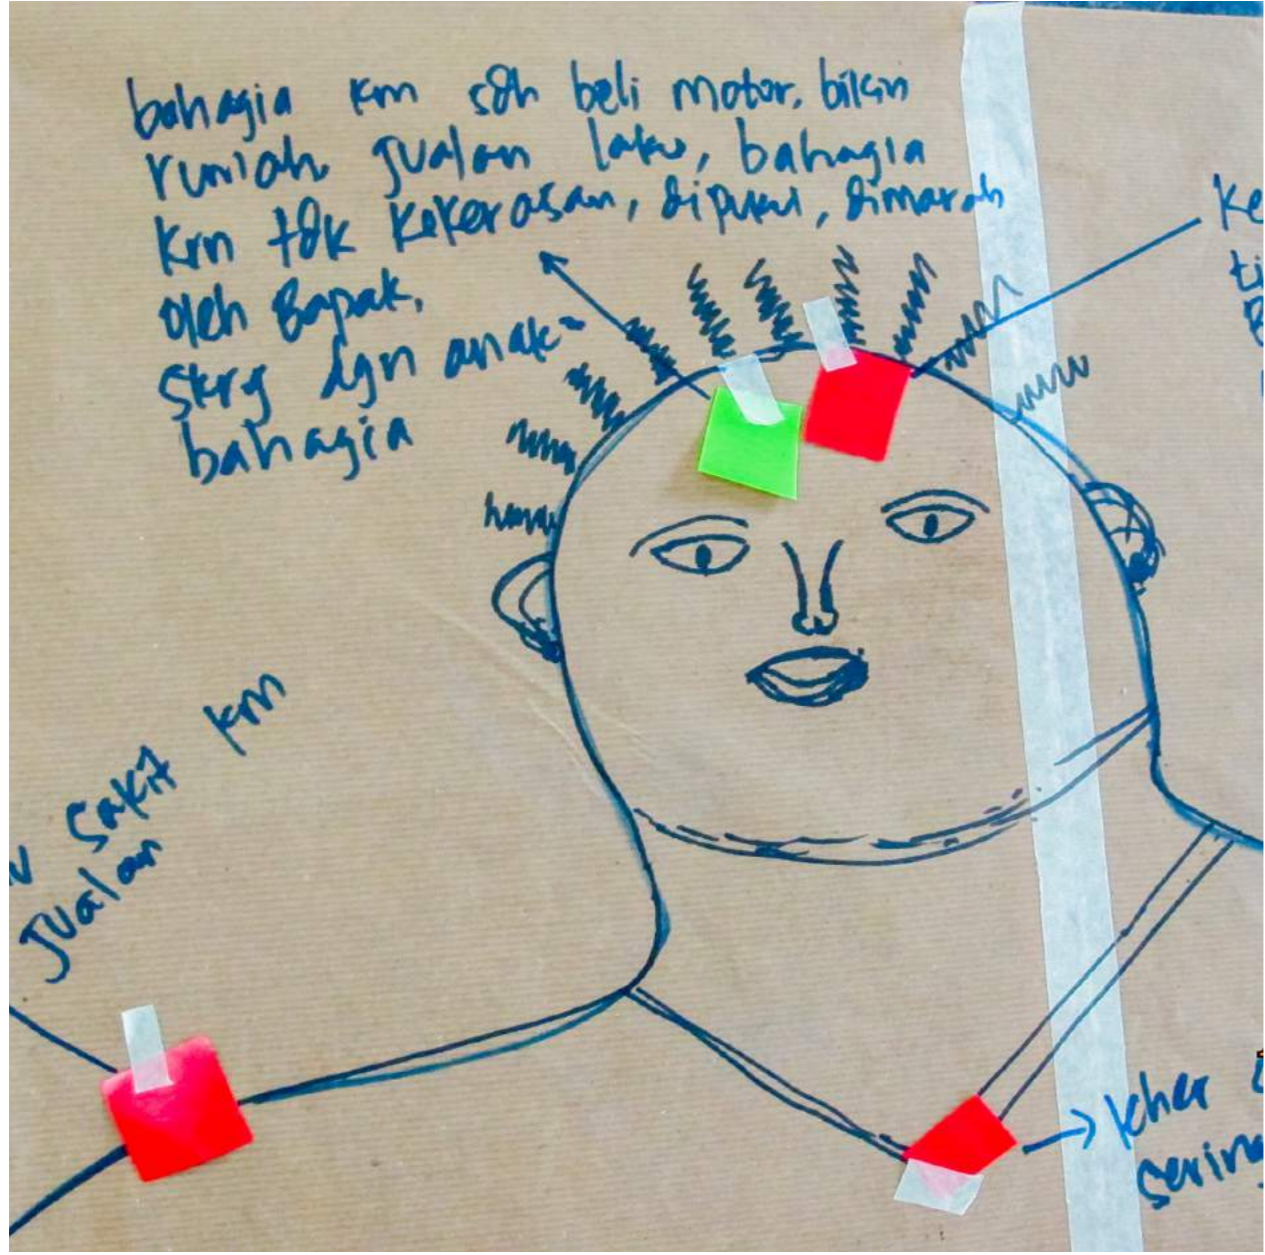 bahagia krn sdh beli motor, bikin
rumah jualan laku, bahagia
krn tdk kekerasan, dipukul, dimarah
oleh Bapak,
skrg dgn anak"
bahagia
sakit krn
jualan
Ke
ti
sering